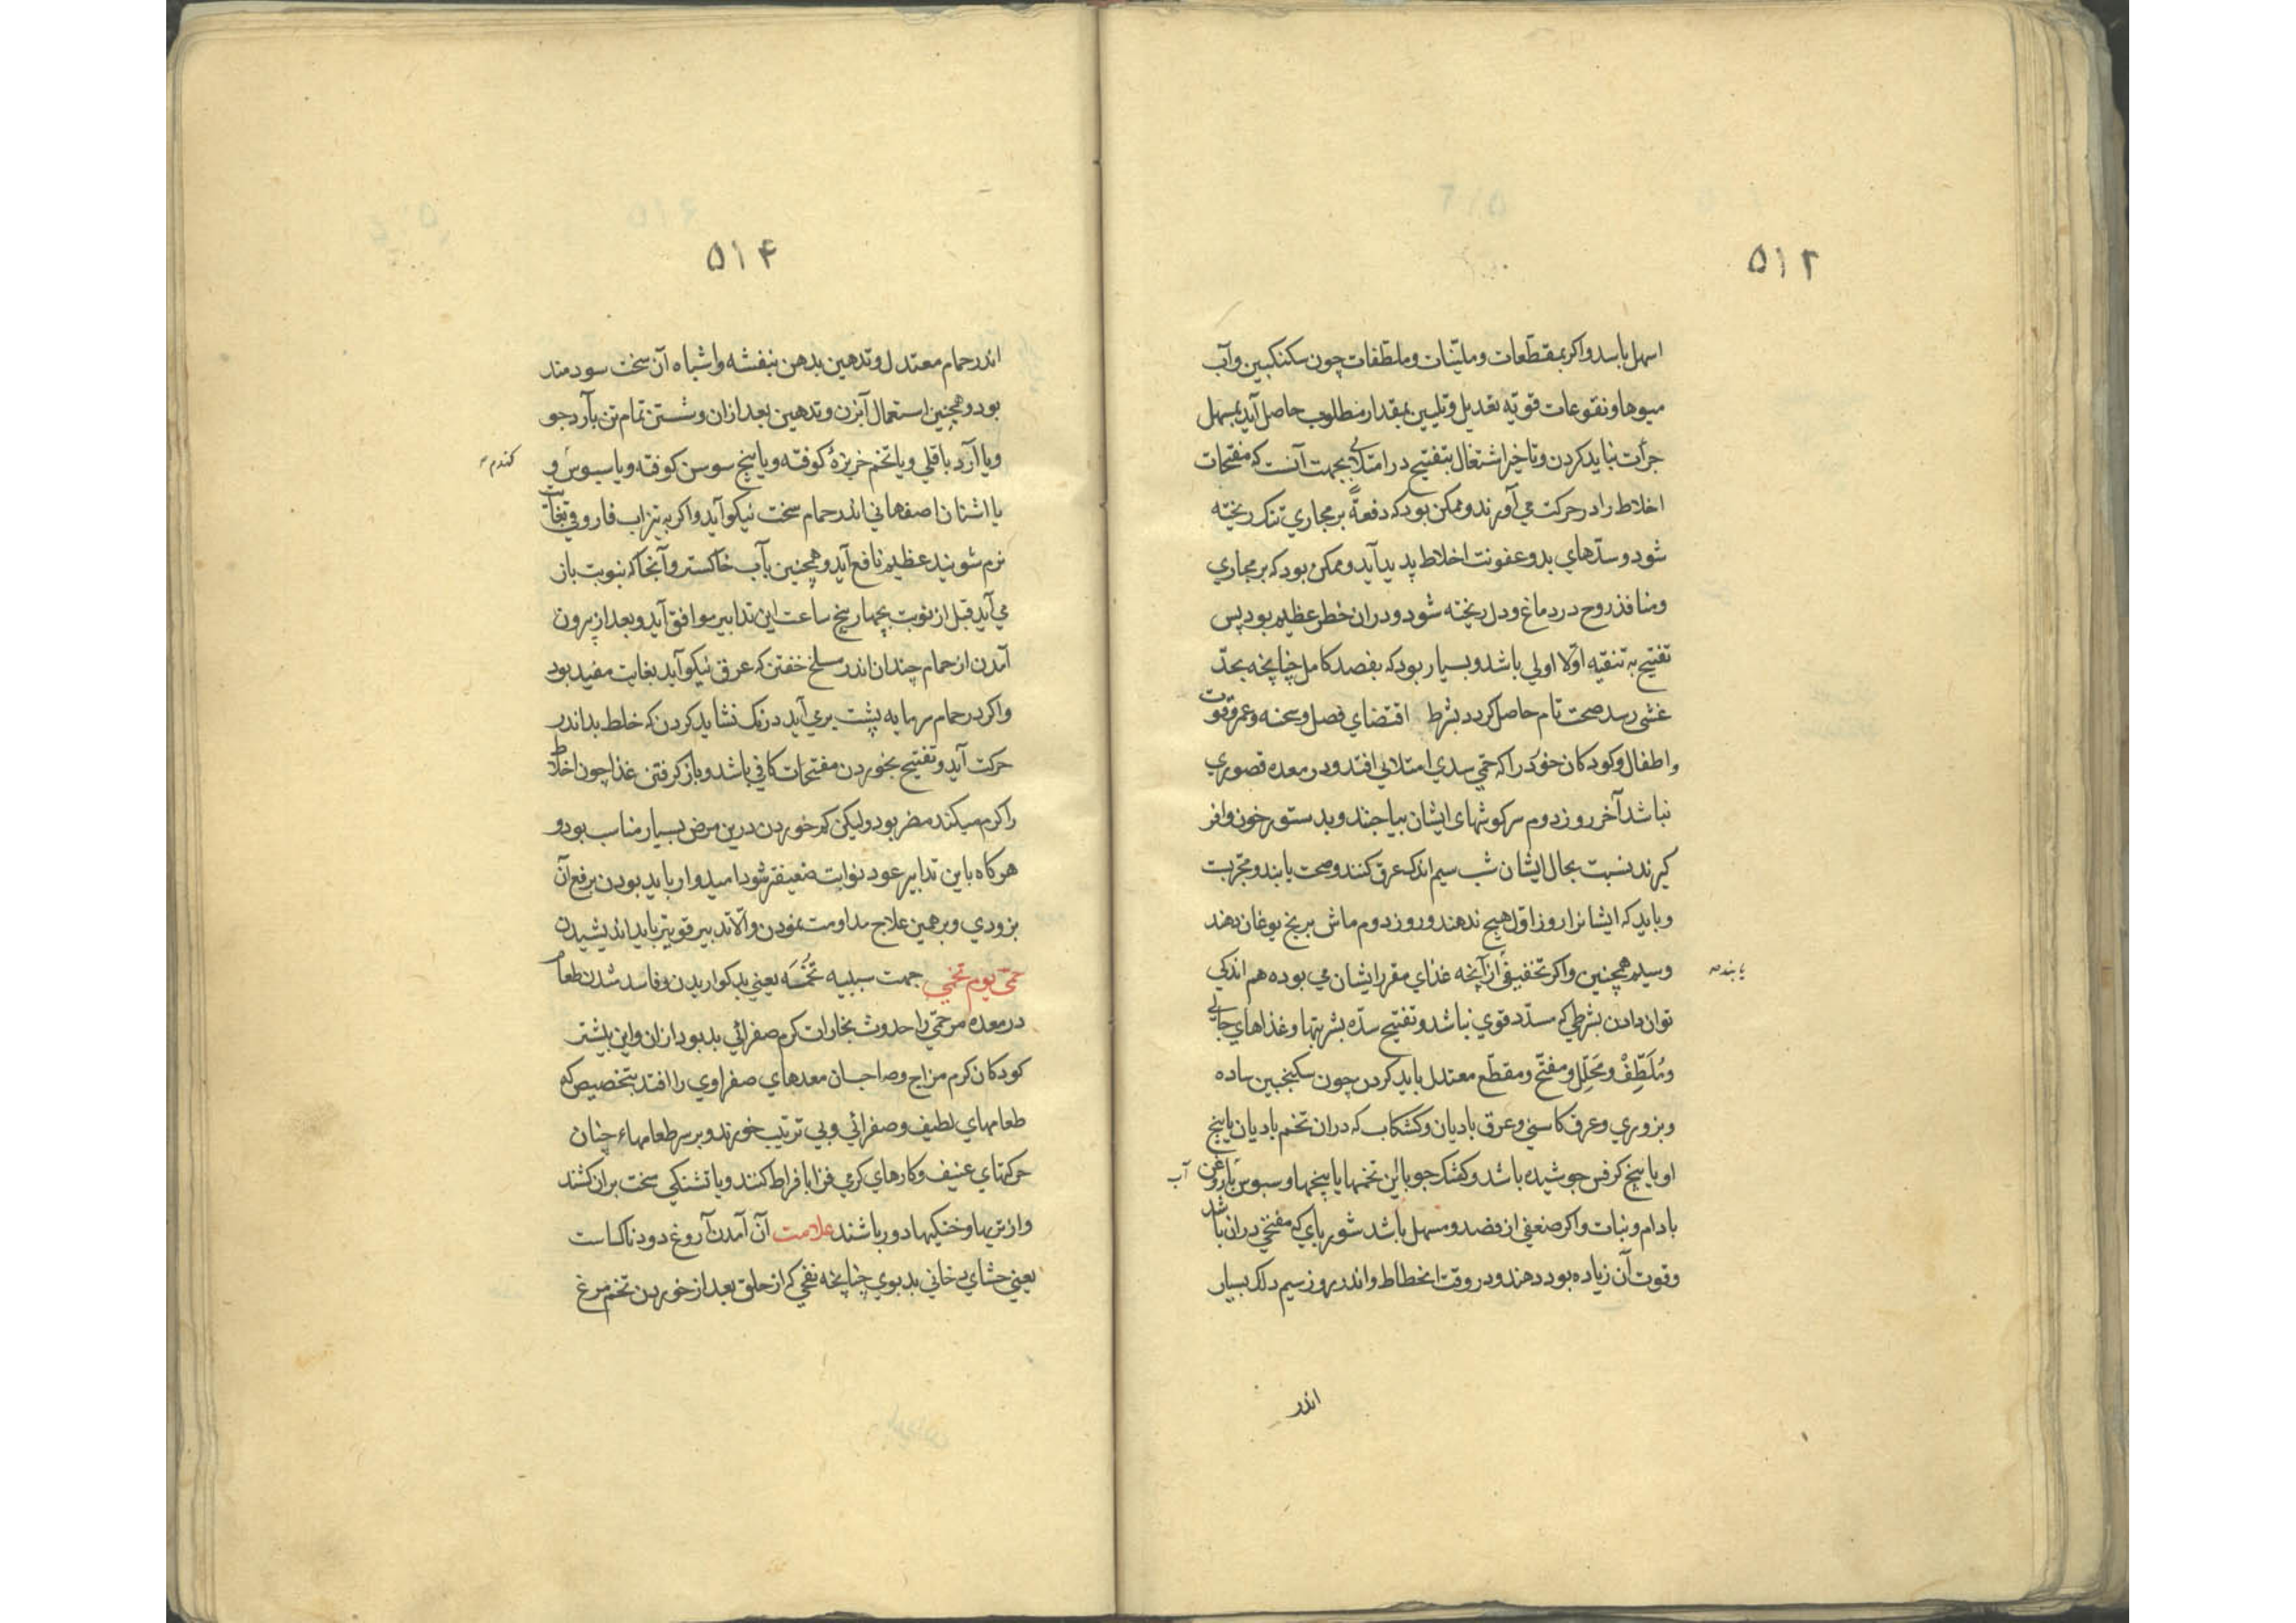 ۵۱۲
اسهل باسد واکر بمقطّعات وملیّنات وملطّفات چون سکنکبین وآب
میوها ونقوعات قویّه تعدیل وتلیین بمقدار مطلوب حاصل آید بمسهل
جرأت نباید کردن وتاخیر اشتغال بتفتیح در امتلایی بجهت آنست که مفتّحات
اخلاط را در حرکت می آورند وممکن بود که دفعةً بر مجاري تنک ریخته
شود وسدّهاي بد وعفونت اخلاط پدید آید وممکن بود که بر مجاري
ومنافذ روح در دماغ ودل ریخته شود ودران خطر عظیم بود پس
تفتیح به تنقیه اوّلا اولي باشد وبسیار بود که بفصد کامل چنانچه بحدّ
غشی رسد صحت تام حاصل کردد بشرط اقتضاي فصل وسحنه وعمر وقوت
واطفال وکودکان خوُرد را که حمّي سدي امتلائي افتد ودر معده قصوري
نباشد آخر روز دوم سر کوشهای ایشان بیاجند وبدستور خون وافر
کیرند نسبت بحال ایشان شب سیم اندک عرق کنند وصحت یابند ومجرّبست
وباید که ایشانرا روز اوّل هیچ ندهند وروز دوم ماش برنج بوغان دهند
وسیم همچنین واکر تخفیفی از آنچه غذاي مقرر ایشان می بوده هم اندکي
یابند صه
توان دادن بشرطي که مسدّد قوي نباشد وتفتیح سدّه بشربتها وغذاهاي جالي
ومُلَطِّفْ ومُحَلِّل ومفتّح ومقطّع معتدل باید کردن چون سکنجبین ساده
وبزوري وعرق کاسني وعرق بادیان وکشکاب که دران تخم بادیان یا بیخ
او یا بیخ کرفس جوشیده باشد وکشک جو با این تخمها یا بیخها وسبوس با روغن
آب
بادام ونبات واکر ضعفي از فصد ومسهل باشد شورباي که مفتّحي دران باشد
وقوت آن زیاده بود دهند ودر وقت انحطاط واندر روز سیم دلک بسیار
اندر
۵۱۴
اندر حمام معتدل وتدهین بدهن بنفشه واشباه آن سخت سودمند
بود وهمچنین استعمال آبزن وتدهین بعد ازان وشستن تمام تن بآرد جو
ویا آرد باقلي ویا تخم خربزهٔ کوفته ویا بیخ سوسن کوفته ویا سبوس و
کندم صه
یا اشنان اصفهاني اندر حمام سخت نیکو آید واکر به تیزاب فاروقي بغایت
نرم شویند عظیم نافع آید وهمچنین بآب خاکستر وآنجا که بنوبت باز
مي آید قبل از نوبت بچهار پنج ساعت این تدابیر موافق آید وبعد از بیرون
آمدن از حمام چندان اندر مسلخ خفتن که عرق نیکو آید بغایت مفید بود
واکر در حمام سرمایه پشت بري آید درنک نشاید کردن که خلط بد اندر
حرکت آید وتفتیح بخوردن مفتحات کافي باشد وباز کرفتن غذا چون اخلاط
را کرم میکند مضر بود ولیکن کم خوردن درین مرض بسیار مناسب بود و
هرکاه باین تدابیر عود نوایت ضعیفتر شود امیدوار باید بودن برفع آن
بزودي وبر همین علاج مداومت نمودن والّا تدبیر قویتر باید اندیشیدن
حمّی یوم تخمي جهت سببیه تُخْمَه یعني بد کواریدن وفاسد شدن طعام
در معده مر حمّي را حدوث بخارات کرم صفرائي بد بود ازان واین بیشتر
کودکان کرم مزاج وصاحبان معدهاي صفراوي را افتد بتخصیص که
طعامهاي لطیف وصفرائي وبي ترتیب خورند وبر سر طعامهاء چنان
حرکتهاي عنیف وکارهاي کرمي فزا بافراط کنند ویا تشنکي سخت بران کشند
واز تریها وخنکیها دور باشند علامت آن آمدن آروغ دودناکست
یعني جشاي دخاني بدبوي چنانچه نفخي که از حلق بعد از خوردن تخم مرغ